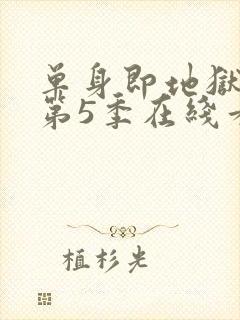 单身即地獄
第5季在綫
植杉光